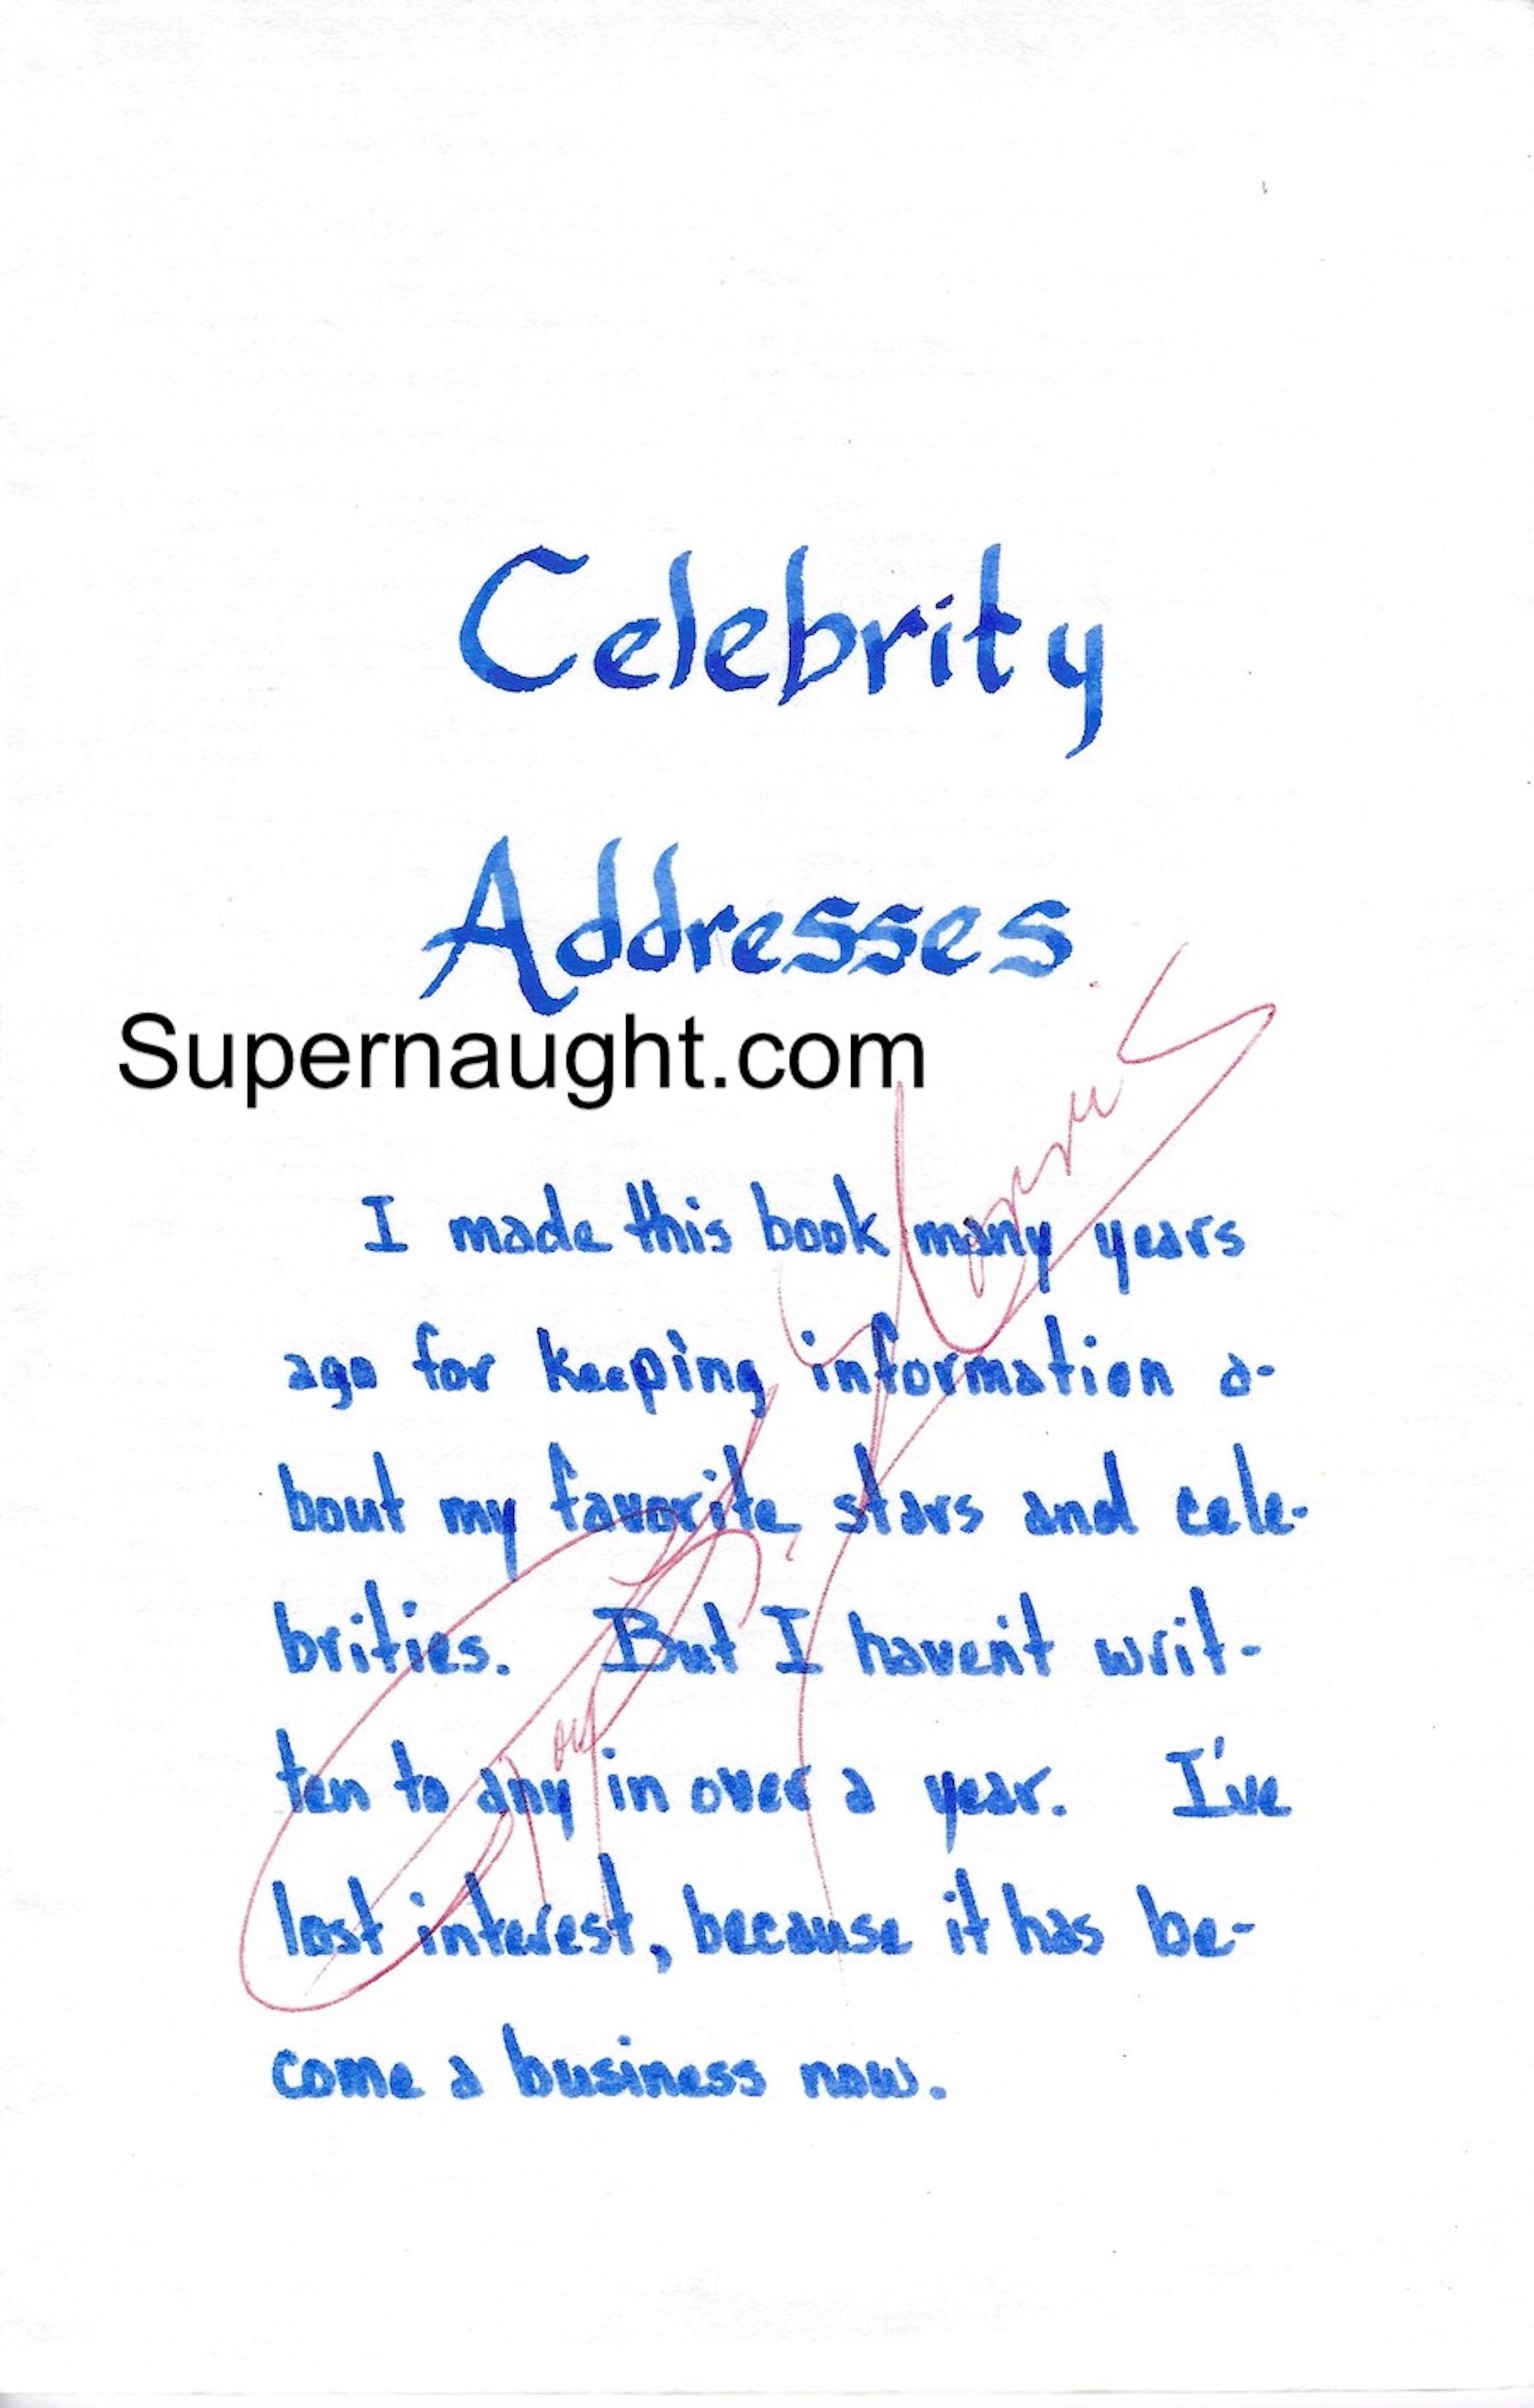 Celebrity
Addresses
Supernaught.com
I made this book many years
ago for keeping information a-
bout my favorite stars and cele-
brities. But I haven't writ-
ten to any in over a year. I've
lost interest, because it has be-
come a business now.